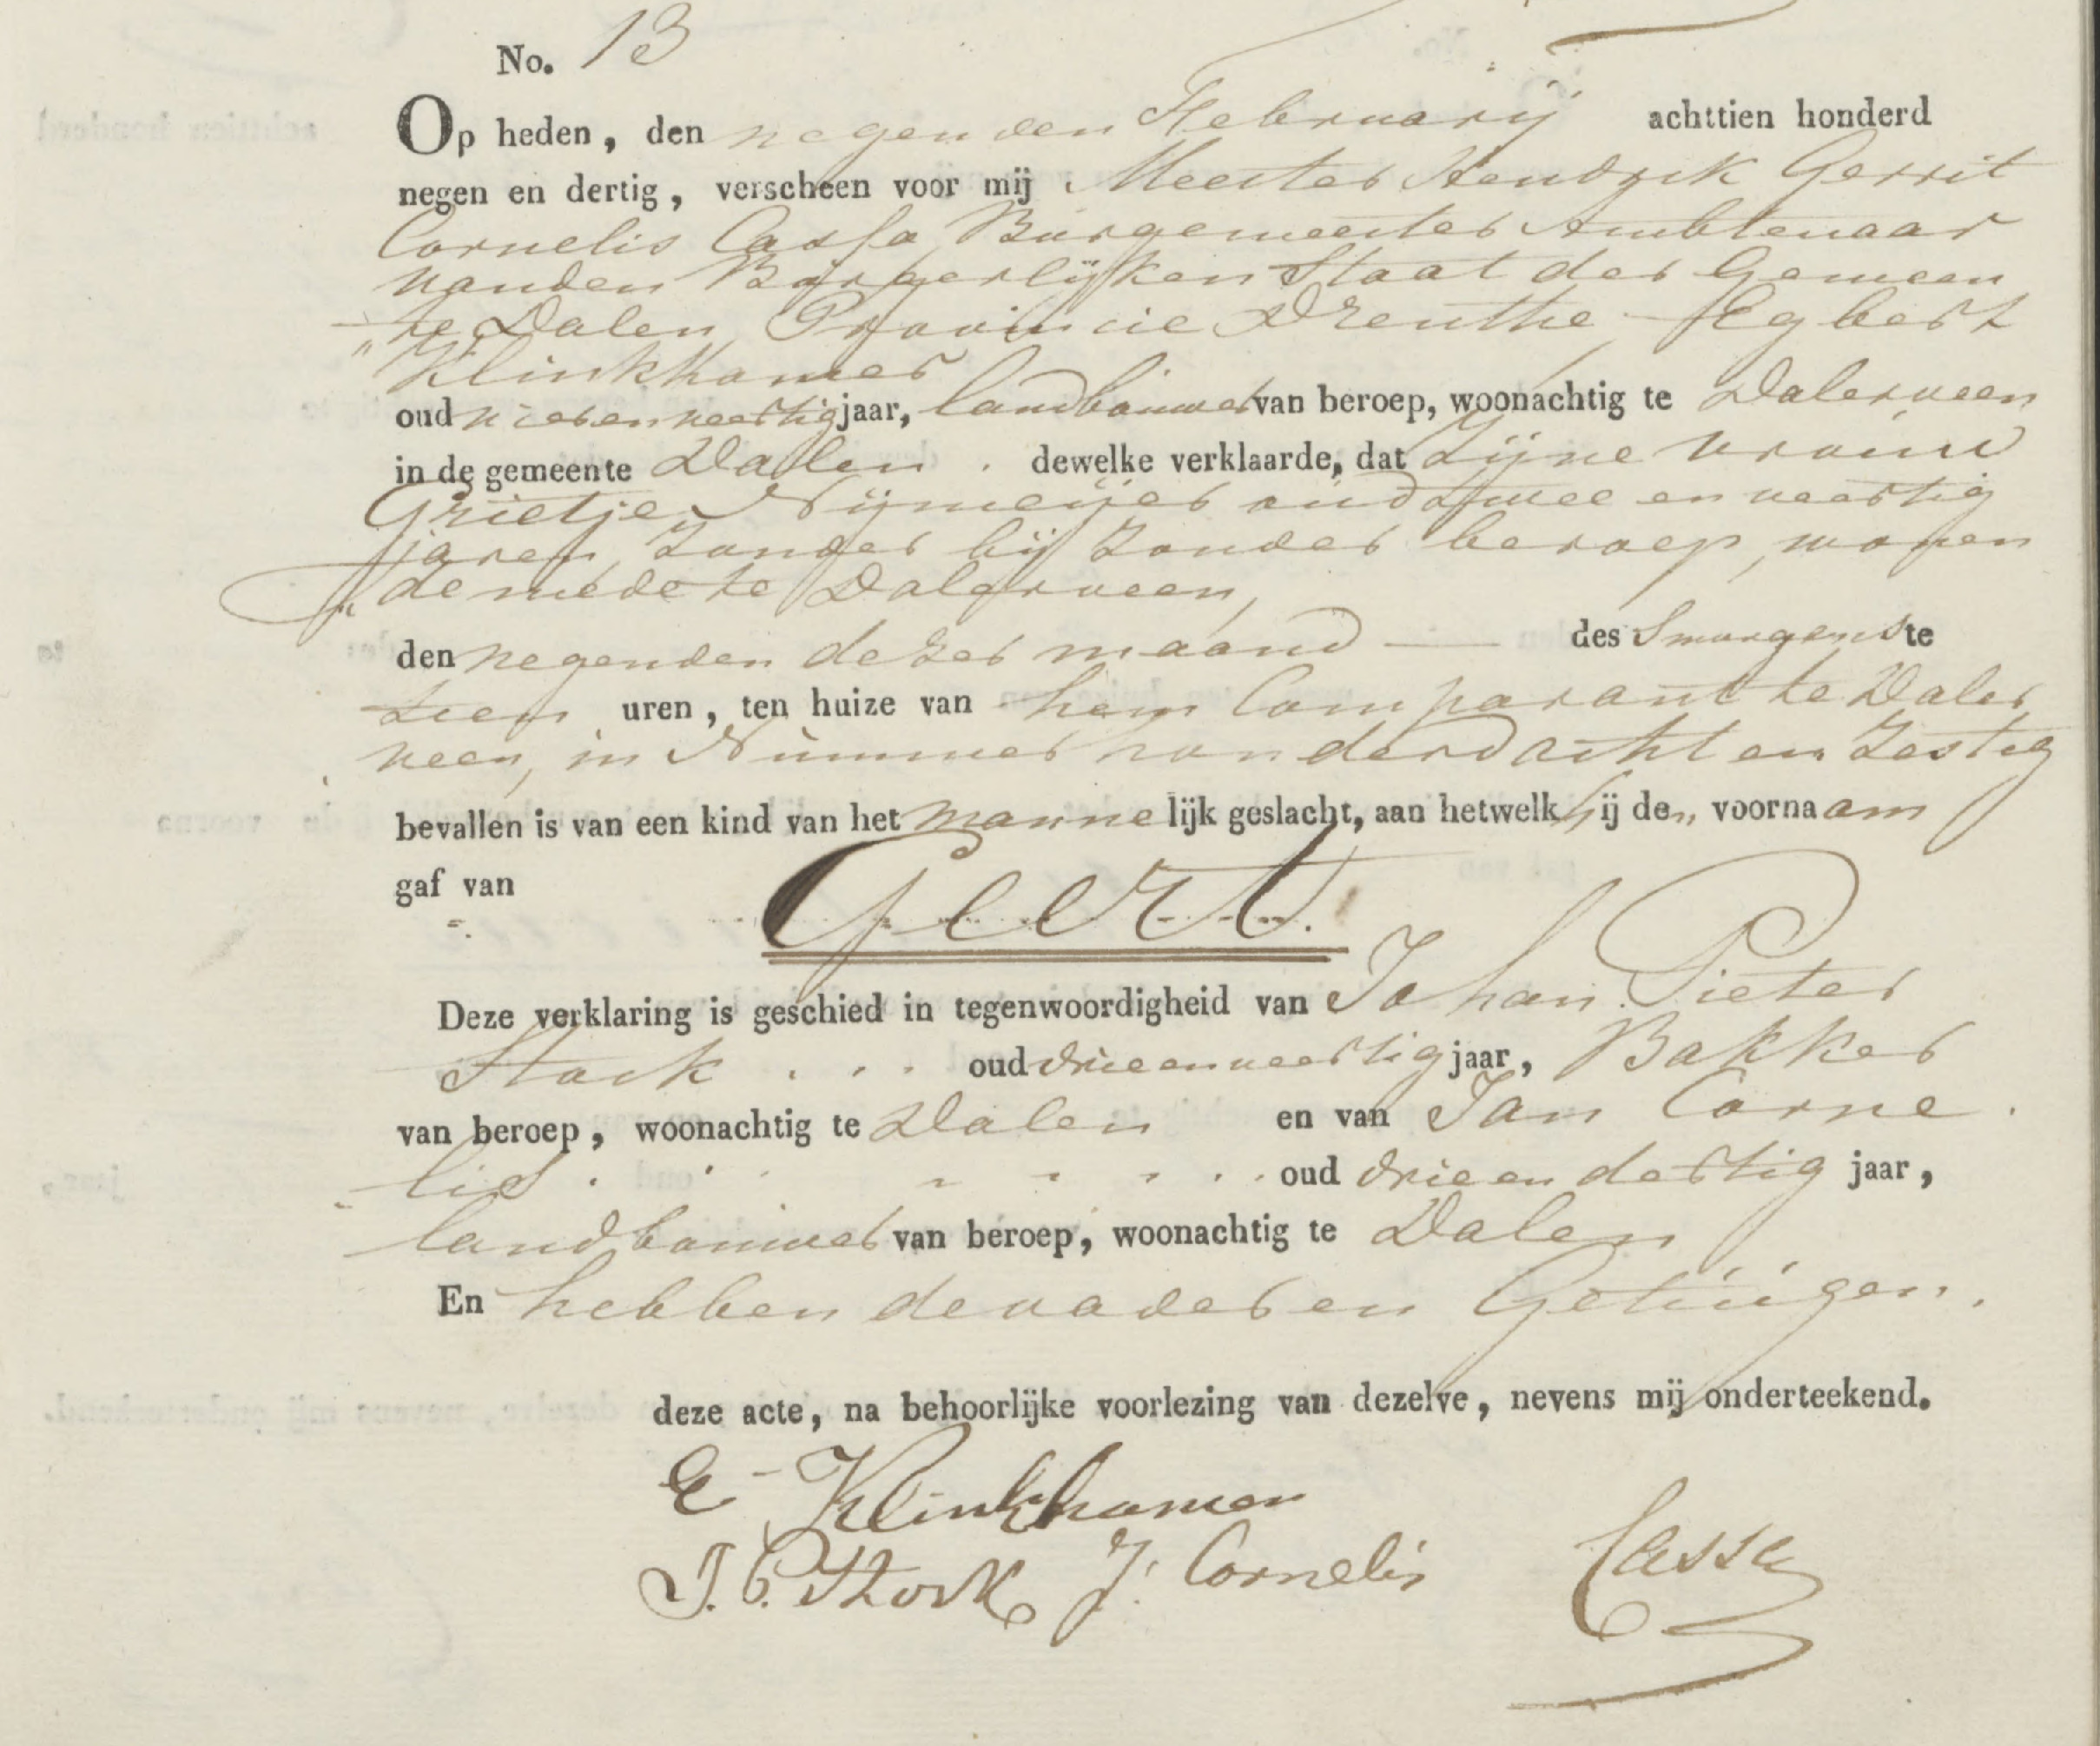 No. 13
Op heden, den negenden Februarij achttien honderd
negen en dertig, verscheen voor mij Meester Hendrik Gerrit
Cornelis Cassa, Burgemeester Ambtenaar
van den Burgerlijken Staat der Gemeen
te Dalen, Provincie Drenthe, Egbert
Klinkhamer
oud vier en veertig jaar, landbouwer van beroep, woonachtig te Dalerveen
in de gemeente Dalen . dewelke verklaarde, dat zijne vrouw
Grietje Nijmeijer oud twee en veertig
jaren, zonder bij zonder beroep, wonen
"de mede te Dalerveen,
den negenden dezer maand — des Smorgens te
tien uren, ten huize van hem Comparant te Daler
veen, in Nummer honderd acht en zestig
bevallen is van een kind van het mannelijk geslacht, aan hetwelk hij den voornaam
gaf van Geert.
Deze verklaring is geschied in tegenwoordigheid van Johan Pieter
Stork . . . oud drie en veertig jaar, Bakker
van beroep, woonachtig te Dalen en van Jan Corne
lis . . . oud drie en dertig jaar,
landbouwer van beroep, woonachtig te Dalen
En hebben de vader en Getuigen.
deze acte, na behoorlijke voorlezing van dezelve, nevens mij onderteekend.
E Klinkhamer
J. P. Stork J. Cornelis Cassa